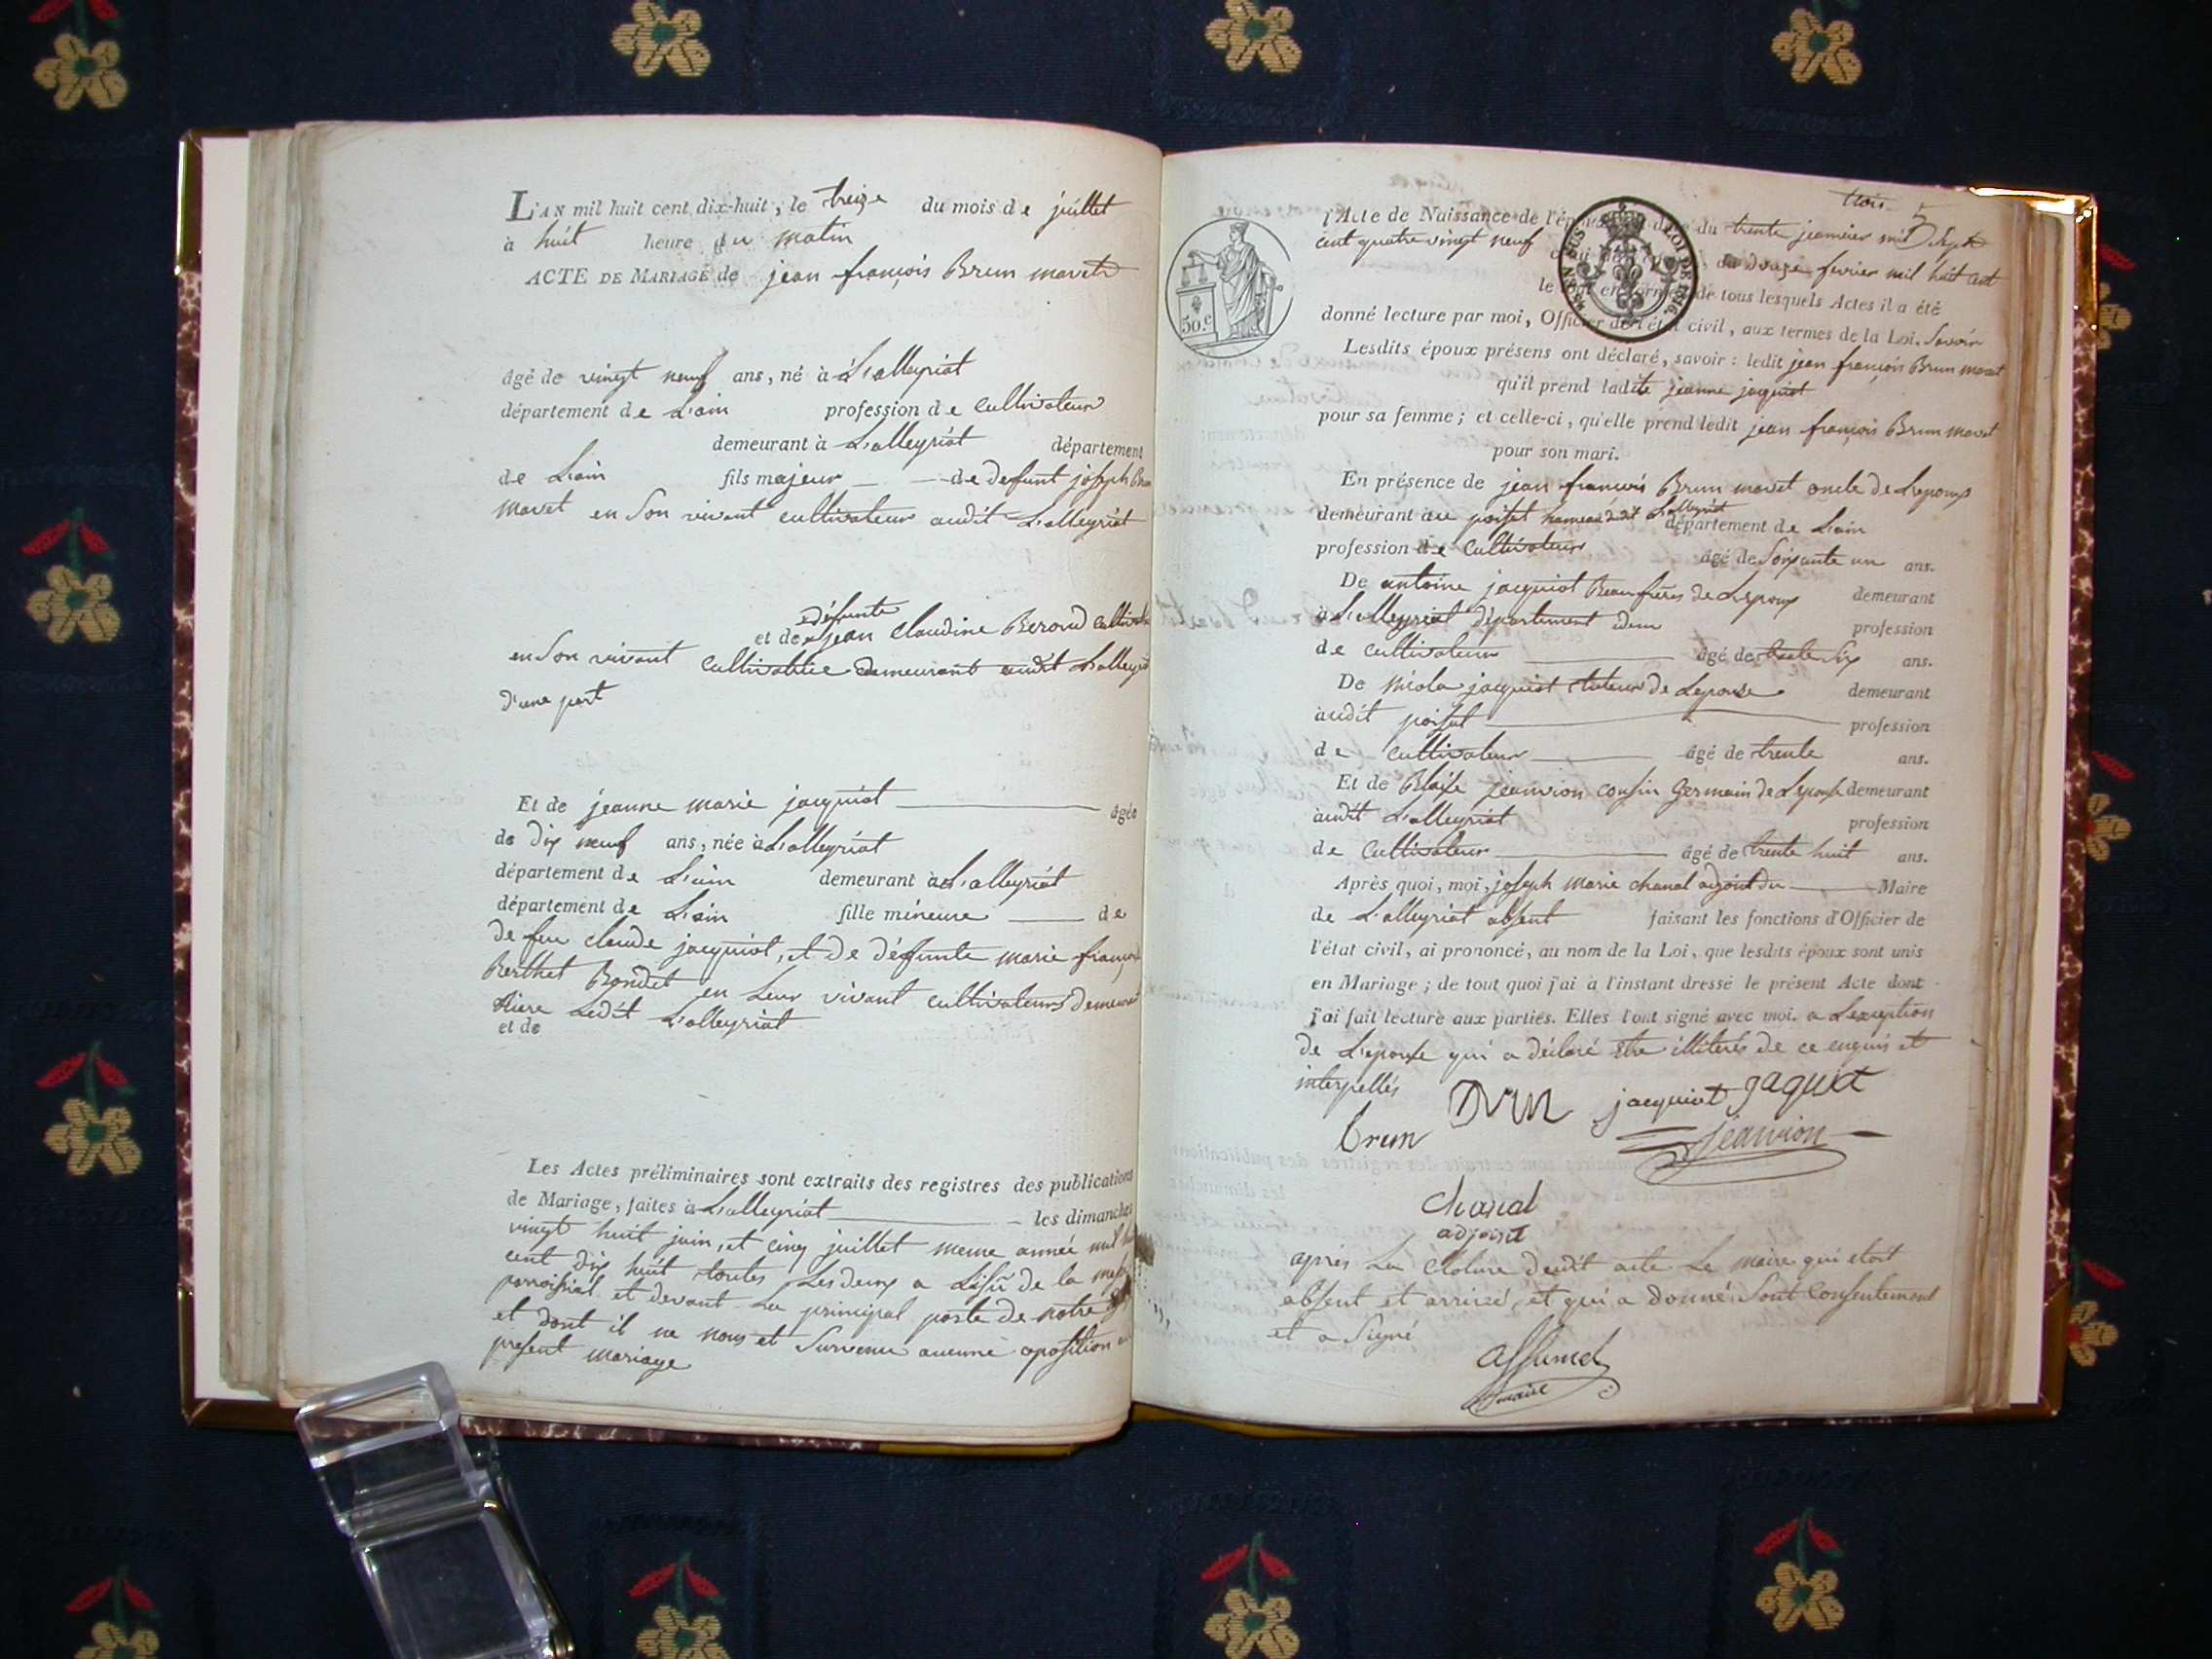 L'AN mil huit cent dix-huit, le treize du mois de juillet
à huit heure du matin
ACTE DE MARIAGE de jean françois Brun mavet
âgé de vingt neuf ans, né à L'alleyriat
département de L'ain profession de cultivateur
demeurant à L'alleyriat département
de L'ain fils majeur de defunt joseph Brun
mavet en son vivant cultivateur audit L'alleyriat
défunte
et de jean claudine Beroud
en Son vivant cultivatrice demeurant audit L'alleyriat
d'une part
Et de jeanne marie jacquiot âgée
de dix neuf ans, née à L'alleyriat
département de L'ain demeurant à L'alleyriat
département de L'ain fille mineure de
de feu claude jacquiot, et de défunte marie françoise
Berthet Bondet en Leur vivant cultivateurs demeurant
Ledit L'alleyriat
et de
Les Actes préliminaires sont extraits des registres des publications
de Mariage, faites à L'alleyriat les dimanches
vingt huit juin, et cinq juillet meme année mil huit
cent dix huit toutes Les deux a L'isü de la messe
paroissial et devant La principal porte de notre
et dont il ne nous et Survenu aucune oposition au
present mariage
trois 5
l'Acte de Naissance de l'époux du trente jeanvier mil Sept
cent quatre vingt neuf du douze fevrier mil huit cent
le tout en forme: de tous lesquels Actes il a été
TIMBRE EN SUS LOI DE 1816.
50.c
donné lecture par moi, Officier de l'état civil, aux termes de la Loi. Savoir
Lesdits époux présens ont déclaré, savoir : ledit jean françois Brun mavet
qu'il prend ladite jeanne jacquiot
pour sa femme ; et celle-ci, qu'elle prend ledit jean françois Brun mavet
pour son mari.
En présence de jean francois Brun mavet oncle de L'epoux
demeurant au poiset hameau dudit L'alleyriat département de L'ain
profession de cultivateur âgé de Soixante un ans.
De antoine jacquiot Beaufrères de Lepoux demeurant
à L'alleyriat département idem profession
de cultivateur âgé de trente Six ans.
De nicola jacquiot tuteur de Lepouse demeurant
audit poiset profession
de cultivateur âgé de trente ans.
Et de Blaise jeanvion cousin germain de Lepouse demeurant
audit L'alleyriat profession
de cultivateur âgé de trente huit ans.
Après quoi, moi, joseph marie chanal adjoint du Maire
de L'alleyriat absent faisant les fonctions d'Officier de
l'état civil, ai prononcé, au nom de la Loi, que lesdits époux sont unis
en Mariage ; de tout quoi j'ai à l'instant dressé le présent Acte dont
j'ai fait lecture aux parties. Elles l'ont signé avec moi. a Lexception
de L'epouse qui a déclaré être illiterés de ce enquis et
interpellés
Brun jacquiot jaquiot
brun jeanvion
chanal
adjoint
après La cloture dudit acte Le maire qui étoit
absent et arrivé, et qui a donné Sont Consentement
et a Signé
maire